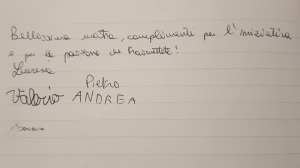 Bellissima mostra, complimenti per l'iniziativa
e per la passione che trasmettete!
Lorena
Pietro
Valerio ANDREA